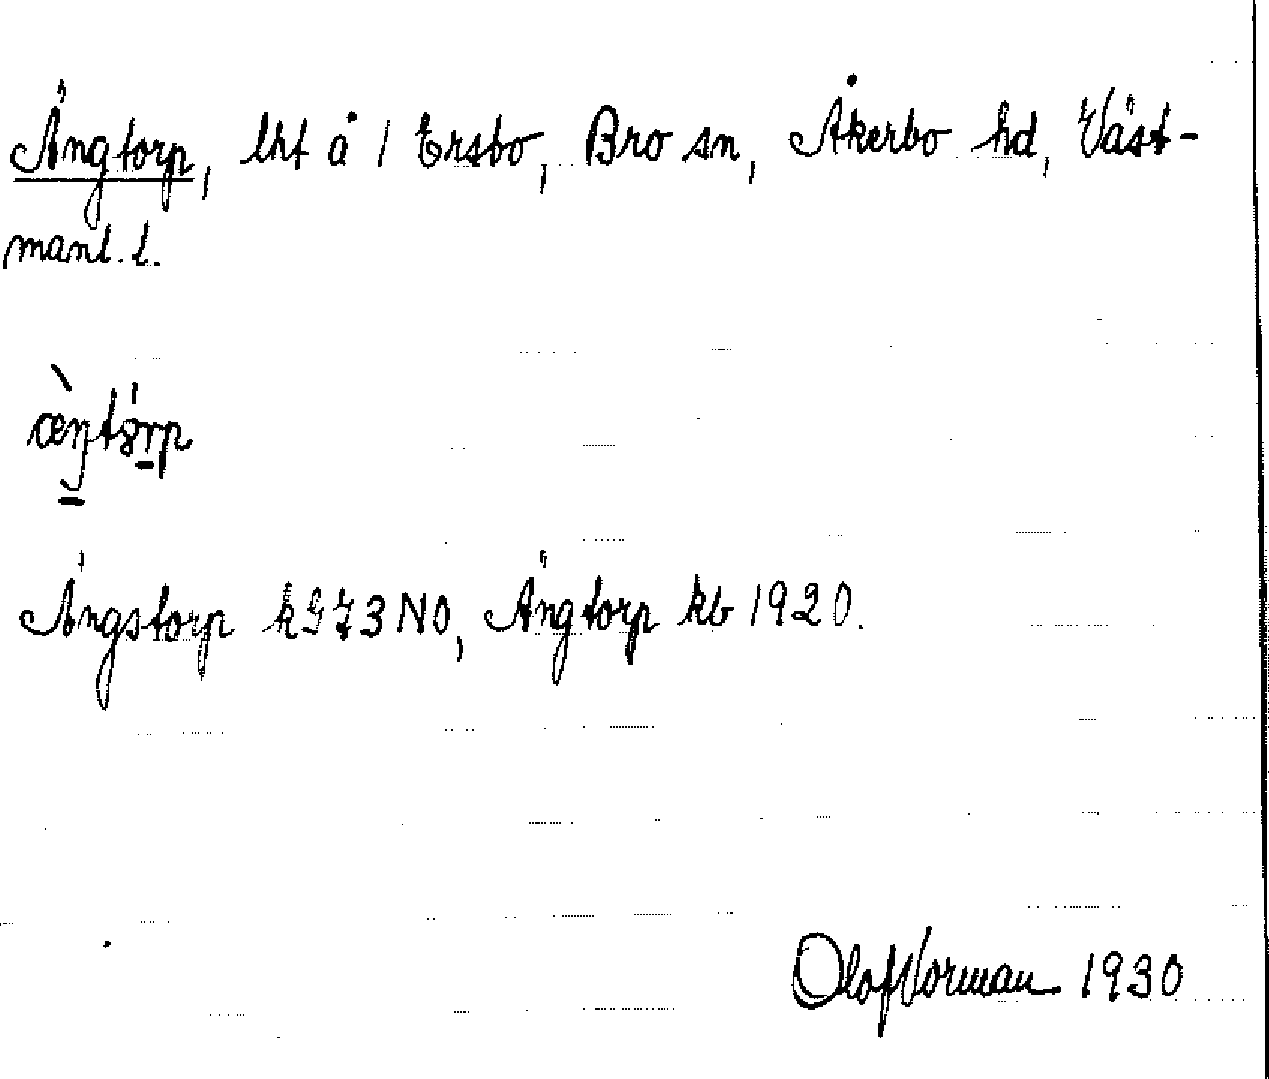 Ängtorp, lht å 1 Ersbo, Bro sn, Åkerbo hd, Väst-
manl. l.
Ängstorp k973NO, Ängtorp kb 1920.
Olof Norman 1930